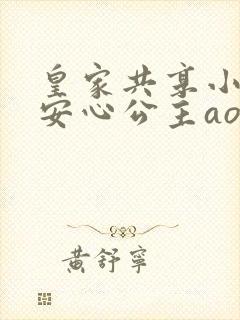 皇家共享小
安心公主ao
黄舒宁